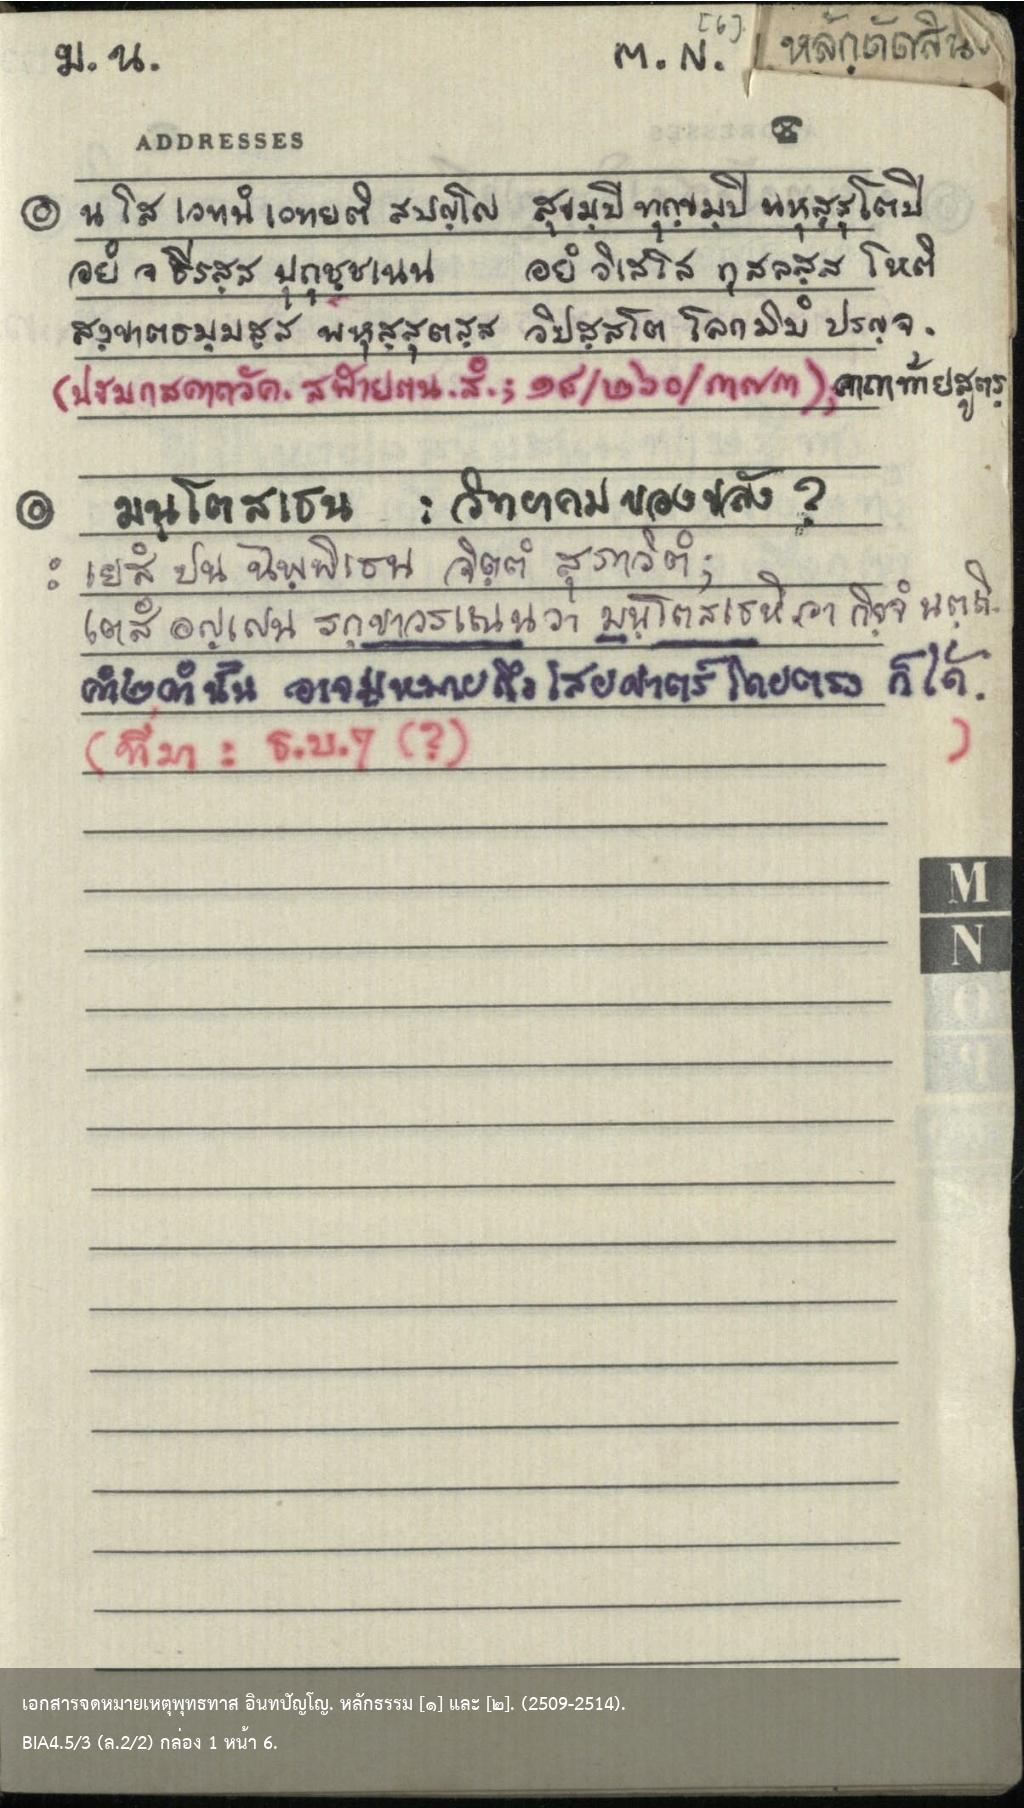 ม.น.
[6]
M.N.
หลักตัดสิน
ADDRESSES
☎
๏ น โส เวทนํ เวทยติ สปญฺโญ สุขมฺปิ ทุกฺขมฺปิ พหุสฺสุโตปิ
อยํ จ ธีรสฺส ปุถุชฺชเนน อยํ วิเสโส กุสลสฺส โหติ
สงฺขาตธมฺมสฺส พหุสฺสุตสฺส วิปสฺสโต โลกมิมํ ปรญฺจ.
(ปฐมกสคาถวัค. สฬายตน.สํ.; ๑๘/๒๖๐/๓๗๓); คาถาท้ายสูตร
๏ มนฺโตสเธน : วิทยาคมของขลัง ?
: เยสํ ปน นิพฺพิเธน จิตฺตํ สุภาวิตํ;
เตสํ อญฺเญน รกฺขาวรเณนวา มนฺโตสเธหิ วา กิจฺจํ นตฺถิ.
คำ๒คำนั้น อาจมุ่งหมายถึงไสยศาตร์โดยตรง ก็ได้.
(ที่มา : ธ.บ.๗ (?) )
M
N
เอกสารจดหมายเหตุพุทธทาส อินทปัญโญ. หลักธรรม [๑] และ [๒]. (2509-2514).
BIA4.5/3 (ล.2/2) กล่อง 1 หน้า 6.